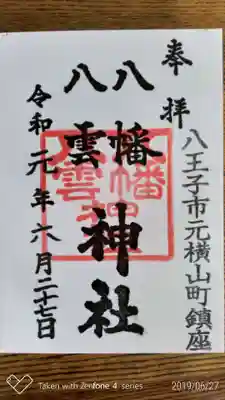 奉拝
八王子市元横山町鎮座
八幡
八雲
神社
令和元年六月二十七日
Taken with zenfone 4 series
2019/06/27